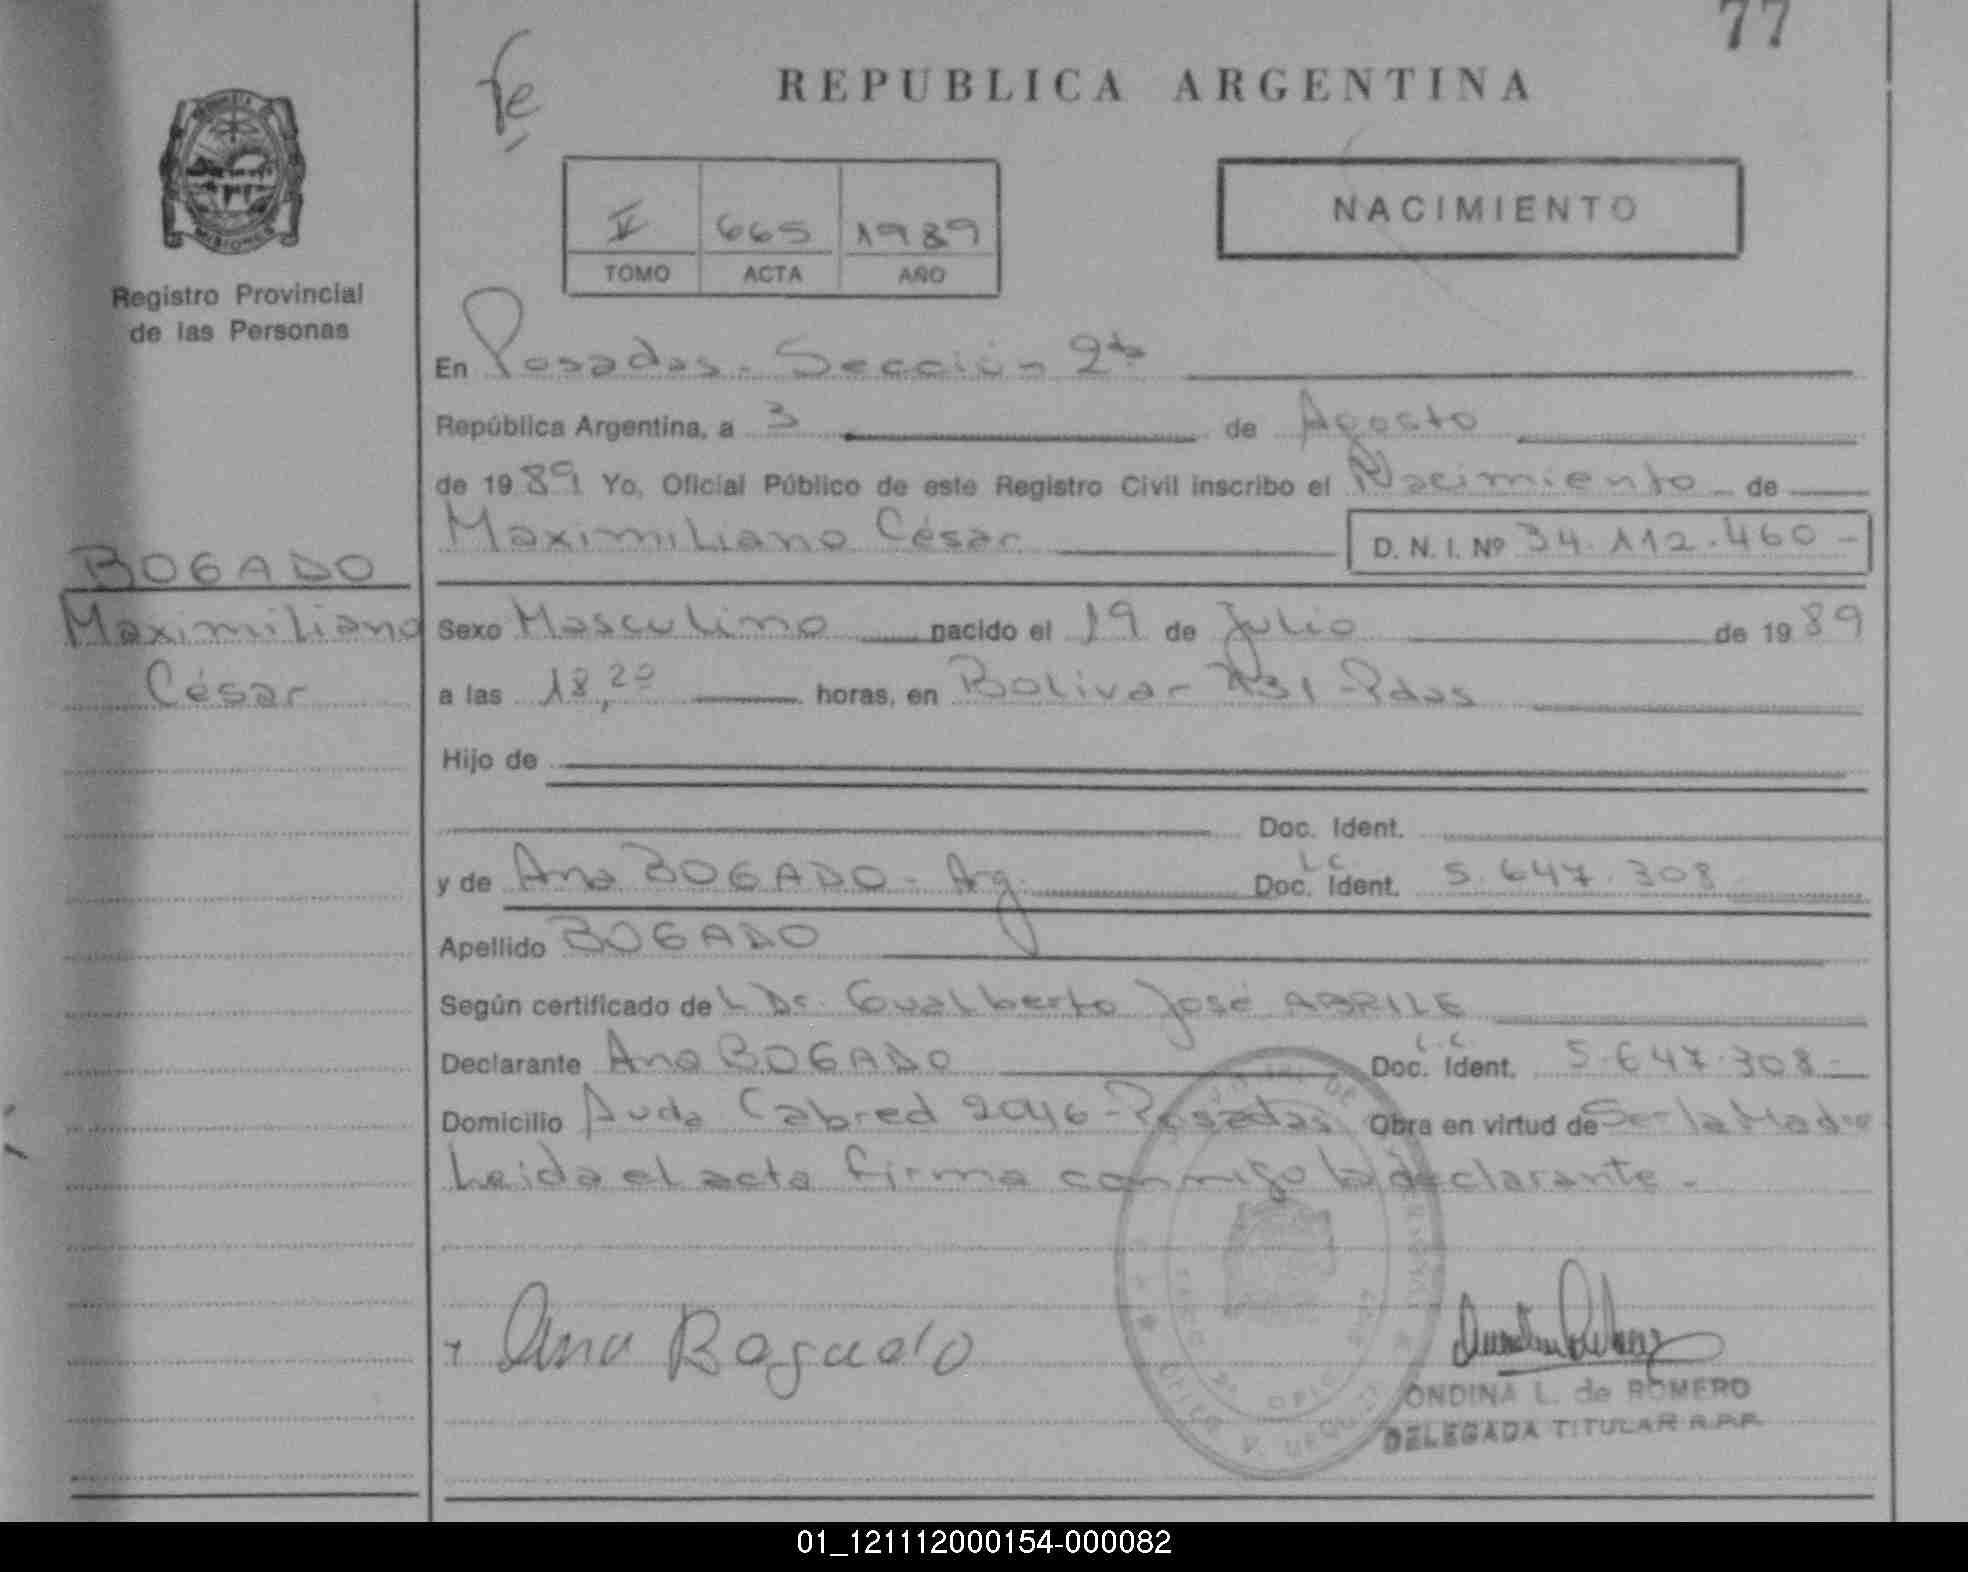 77
REPUBLICA ARGENTINA
Fe
MISIONES
Registro Provincial
de las Personas
665 1989
TOMO ACTA AÑO
NACIMIENTO
En Posadas - Sección 2da
República Argentina, a 3 de Agosto
de 1989 Yo, Oficial Público de este Registro Civil inscribo el Nacimiento de
Maximiliano César D. N. I. Nº 34.112.460 -
BOGADO
Maximiliano
César
Sexo Masculino nacido el 19 de Julio de 1989
a las 18,20 horas, en Bolivar 731 - Pdas
Hijo de
Doc. Ident.
y de Ana BOGADO - Arg. L.C. Doc. Ident. 5.647.308
Apellido BOGADO
Según certificado del Dr. Gualberto José ABRILE
Declarante Ana BOGADO L.C. Doc. Ident. 5.647.308 -
Domicilio Avda Cabred 2046 - Posadas Obra en virtud de Ser la Madre
Leida el acta firma conmigo la declarante -
Ana Bogado
ONDINA L. de ROMERO
DELEGADA TITULAR R.P.P.
01_121112000154-000082